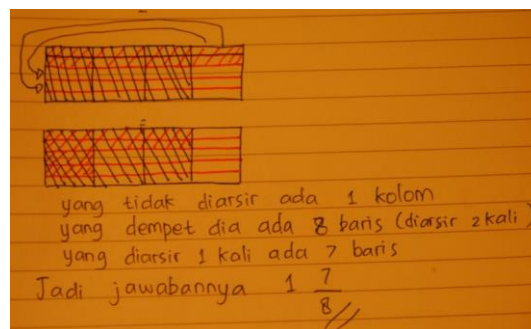 yang tidak diarsir ada 1 kolom
yang dempet dia ada 8 baris (diarsir 2 kali)
yang diarsir 1 kali ada 7 baris
Jadi jawabannya 1 7/8 //